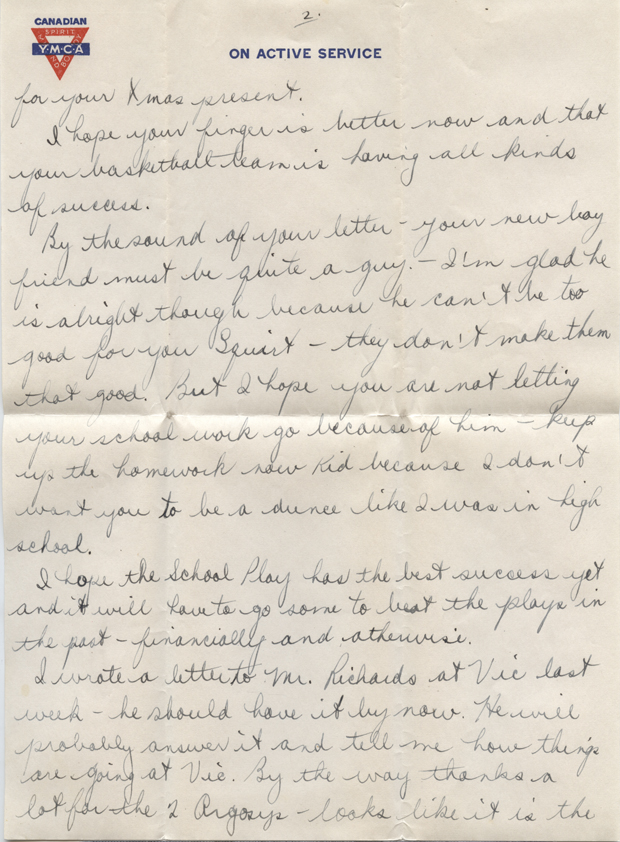 2.
CANADIAN
SPIRIT
Y·M·C·A
MIND
BODY
ON ACTIVE SERVICE
for your Xmas present.
I hope your finger is better now and that
your basketball team is having all kinds
of success.
By the sound of your letter - your new boy
friend must be quite a guy. - I'm glad he
is alright though because he can't be too
good for you Squirt - they don't make them
that good. But I hope you are not letting
your school work go because of him - keep
up the homework now Kid because I don't
want you to be a dunce like I was in high
school.
I hope the School Play has the best success yet
and it will have to go some to beat the plays in
the past - financially and otherwise.
I wrote a letter to Mr. Richards at Vic last
week - he should have it by now. He will
probably answer it and tell me how things
are going at Vic. By the way thanks a
lot for the 2 Argosys - looks like it is the